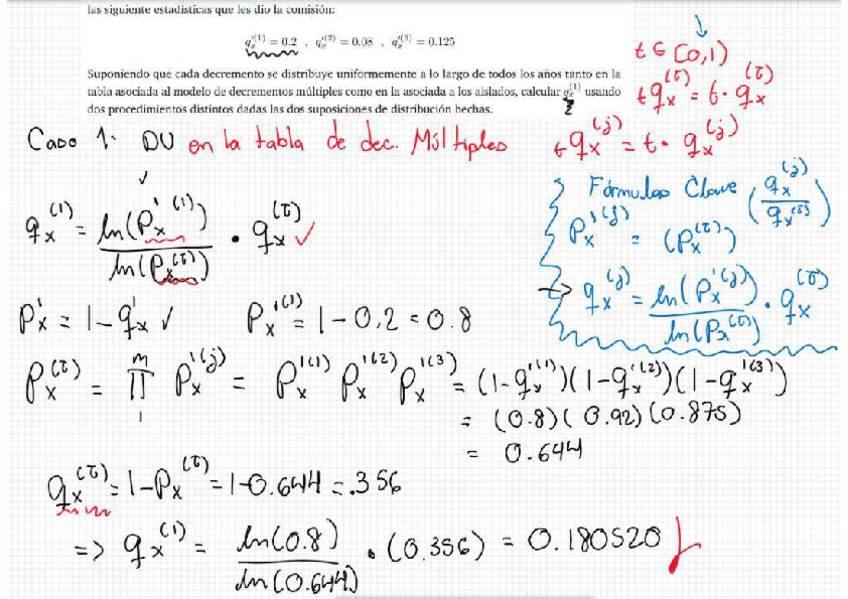 las siguiente estadísticas que les dio la comisión:
q'_x^(1) = 0.2 , q'_x^(2) = 0.08 , q'_x^(3) = 0.125
Suponiendo que cada decremento se distribuye uniformemente a lo largo de todos los años tanto en la
tabla asociada al modelo de decrementos múltiples como en la asociada a los aislados, calcular q_x^(1) usando
dos procedimientos distintos dadas las dos suposiciones de distribución hechas.
t ∈ [0,1)
t q_x^(τ) = t · q_x^(τ)
t q_x^(j) = t · q_x^(j)
Caso 1: DU en la tabla de dec. Múltiples
Fórmulas Clave
P_x'^(j) = (P_x^(τ))^(q_x^(j) / q_x^(τ))
→ q_x^(j) = ln(P_x'^(j)) / ln(P_x^(τ)) · q_x^(τ)
q_x^(1) = ln(P_x'^(1)) / ln(P_x^(τ)) · q_x^(τ) ✓
P_x' = 1 - q_x' ✓ P_x'^(1) = 1 - 0.2 = 0.8
P_x^(τ) = ∏_1^m P_x'^(j) = P_x'^(1) P_x'^(2) P_x'^(3) = (1 - q_x'^(1))(1 - q_x'^(2))(1 - q_x'^(3))
= (0.8)(0.92)(0.875)
= 0.644
q_x^(τ) = 1 - P_x^(τ) = 1 - 0.644 = .356
=> q_x^(1) = ln(0.8) / ln(0.644) · (0.356) = 0.180520